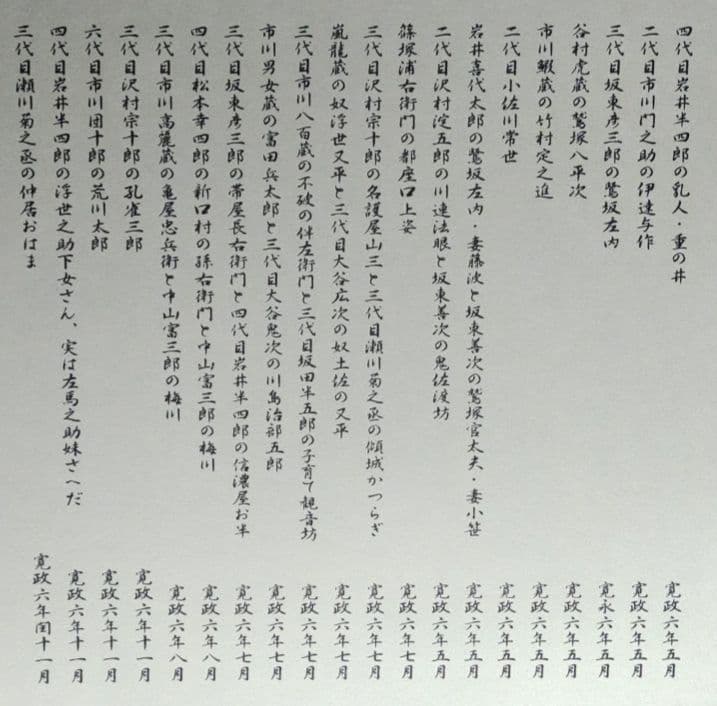 四代目岩井半四郎の乳人・重の井 寛政六年五月
二代目市川門之助の伊達与作 寛政六年五月
三代目坂東彦三郎の鷺坂左内 寛永六年五月
谷村虎蔵の鷲塚八平次 寛政六年五月
市川鰕蔵の竹村定之進 寛政六年五月
二代目小佐川常世 寛政六年五月
岩井喜代太郎の鷺坂左内・妻藤波と坂東善次の鷲塚官太夫・妻小笹 寛政六年五月
二代目沢村淀五郎の川連法眼と坂東善次の鬼佐渡坊 寛政六年五月
篠塚浦右衛門の都座口上姿 寛政六年七月
三代目沢村宗十郎の名護屋山三と三代目瀬川菊之丞の傾城かつらぎ 寛政六年七月
嵐龍蔵の奴浮世又平と三代目大谷広次の奴土佐の又平 寛政六年七月
三代目市川八百蔵の不破の伴左衛門と三代目坂田半五郎の子育て観音坊 寛政六年七月
市川男女蔵の富田兵太郎と三代目大谷鬼次の川島治部五郎 寛政六年七月
三代目坂東彦三郎の帯屋長右衛門と四代目岩井半四郎の信濃屋お半 寛政六年七月
四代目松本幸四郎の新口村の孫右衛門と中山富三郎の梅川 寛政六年八月
三代目市川高麗蔵の亀屋忠兵衛と中山富三郎の梅川 寛政六年八月
三代目沢村宗十郎の孔雀三郎 寛政六年十一月
六代目市川団十郎の荒川太郎 寛政六年十一月
四代目岩井半四郎の浮世之助下女さん、実は左馬之助妹さへだ 寛政六年十一月
三代目瀬川菊之丞の仲居おはま 寛政六年閏十一月